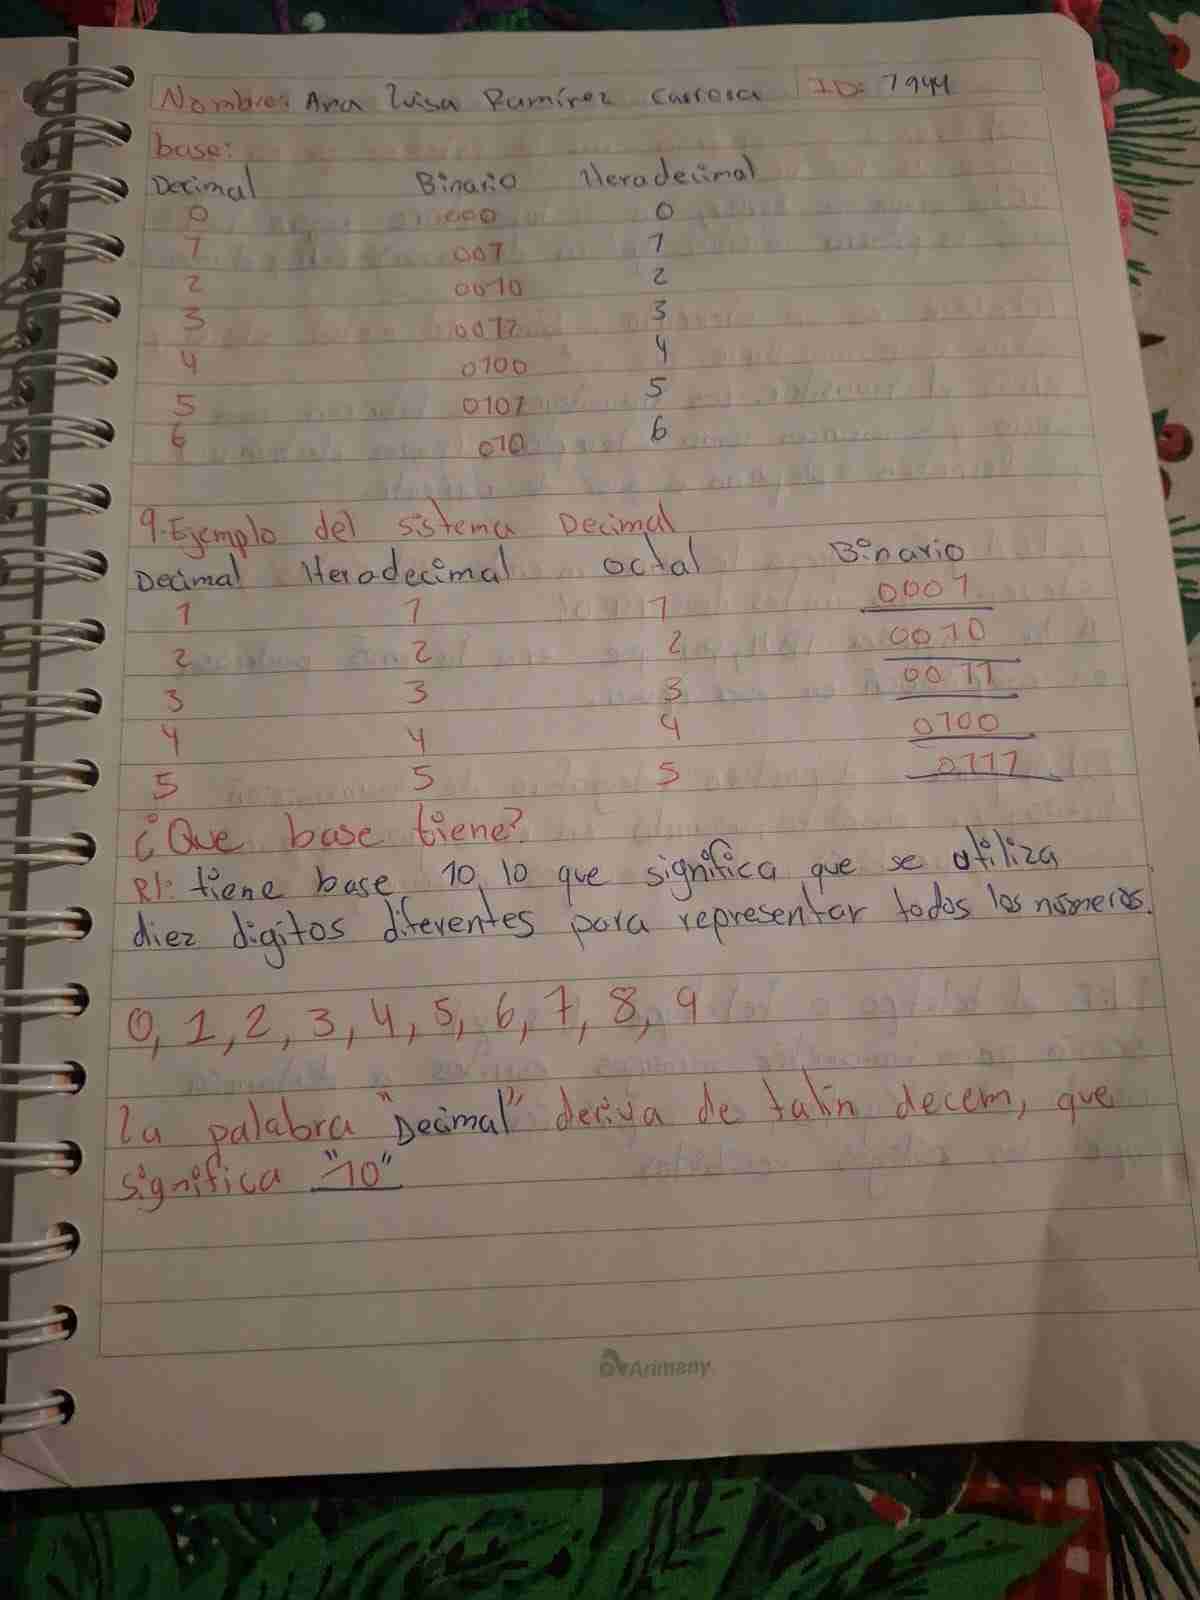 Nombre: Ana Luisa Ramírez Carrera ID: 1944
base:
Decimal Binario Hexadecimal
0 000 0
1 001 1
2 0010 2
3 0011 3
4 0100 4
5 0101 5
6 010 6
9. Ejemplo del sistema Decimal
Decimal Hexadecimal octal Binario
1 1 1 0001
2 2 2 0010
3 3 3 0011
4 4 4 0100
5 5 5 0111
¿Que base tiene?
R1: tiene base 10, lo que significa que se utiliza
diez digitos diferentes para representar todos los números.
0, 1, 2, 3, 4, 5, 6, 7, 8, 9
La palabra "Decimal" deriva de latín decem, que
significa "10"
Arimany